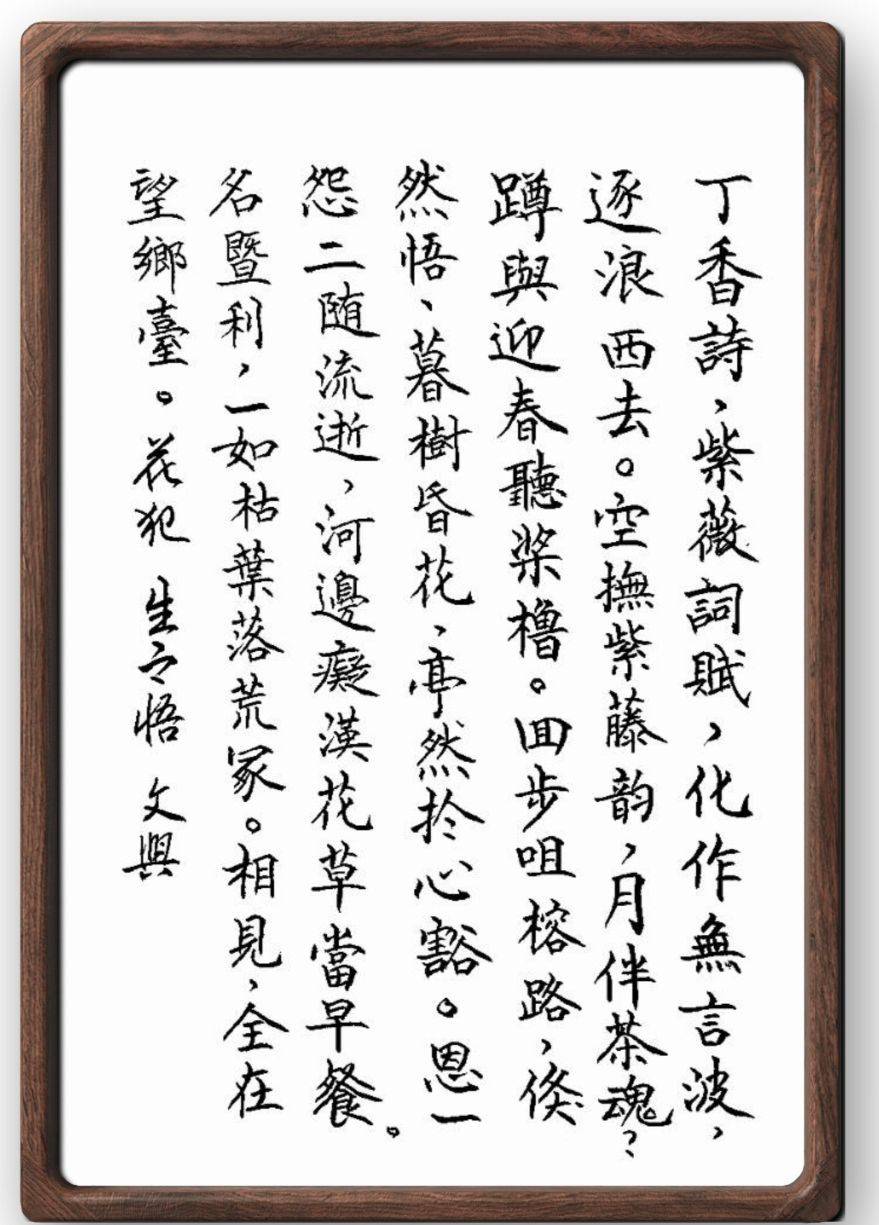 丁香詩、紫薇詞賦，化作無言波，
逐浪西去。空撫紫藤韵，月伴茶魂？
蹲與迎春聽槳櫓。回步咀榕路，倏
然悟、暮樹昏花、亭然於心豁。恩一
怨二随流逝，河邊癡漢花草當早餐。
名暨利，一如枯葉落荒冢。相見，全在
望鄉臺。花犯 生之悟 文興